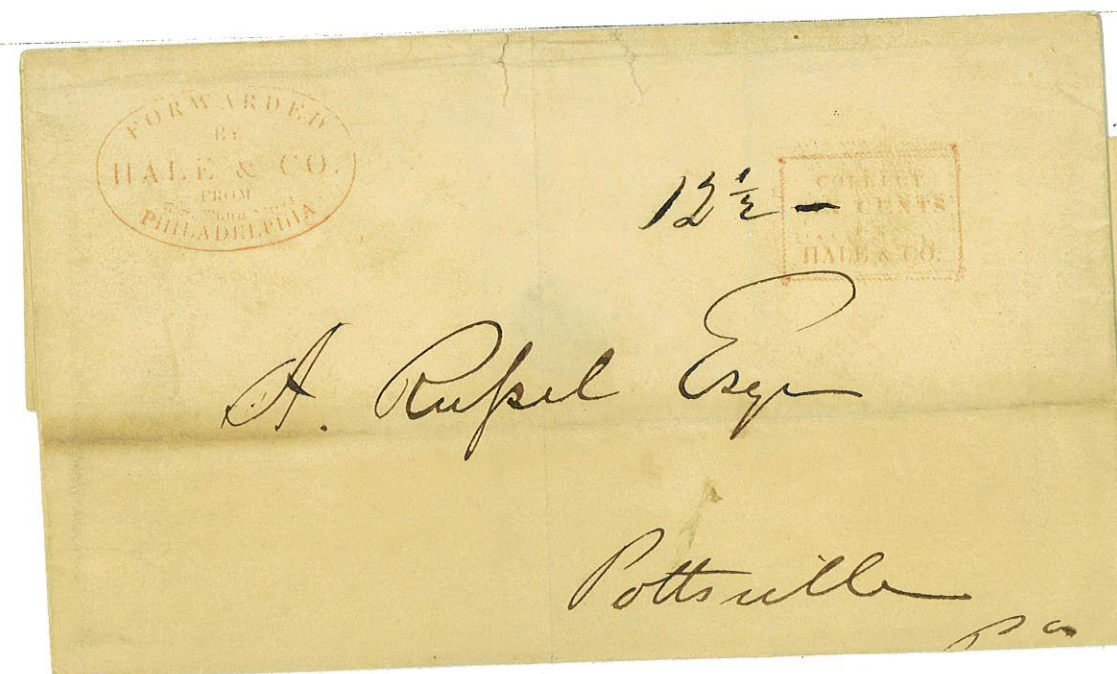 FORWARDED
BY
HALE & CO.
FROM
PHILADELPHIA
12½ –
COLLECT
CENTS
HALE & CO.
A. Rußel Esqr
Pottsville
Pa